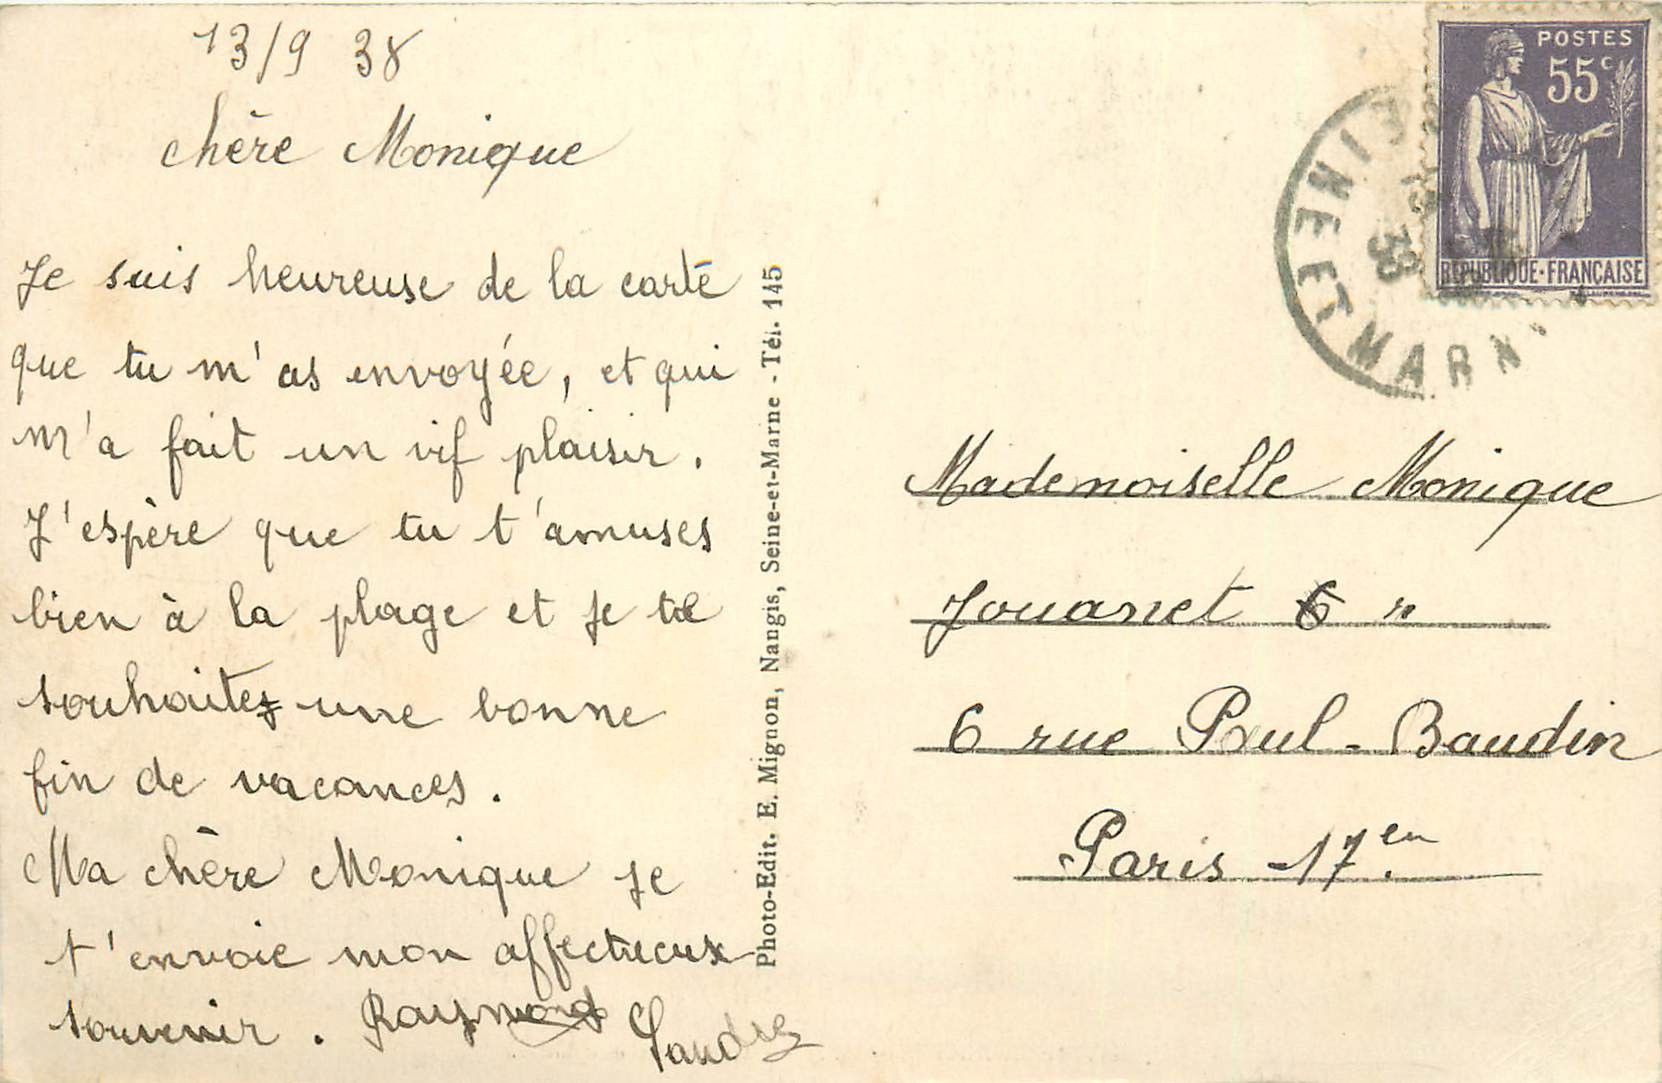 13/9 38
chère Monique
Je suis heureuse de la carte
que tu m'as envoyée, et qui
m'a fait un vif plaisir.
J'espère que tu t'amuses
bien à la plage et je te
souhaitez une bonne
fin de vacances.
Ma chère Monique je
t'envoie mon affectueux
souvenir. Raymond
Photo-Edit. E. Mignon, Nangis, Seine-et-Marne - Tél. 145
POSTES
55c
REPUBLIQUE-FRANÇAISE
SEINE ET MARNE
38
Mademoiselle Monique
Jouanet
6 rue Paul-Baudin
Paris 17en.